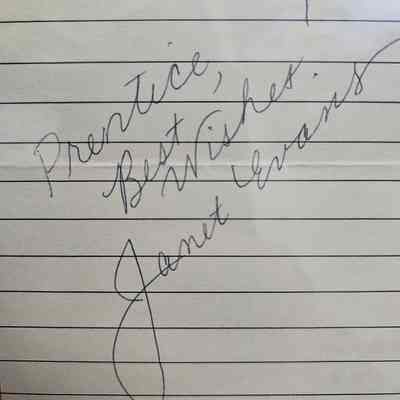 Prentice,
Best Wishes.
Janet Evans